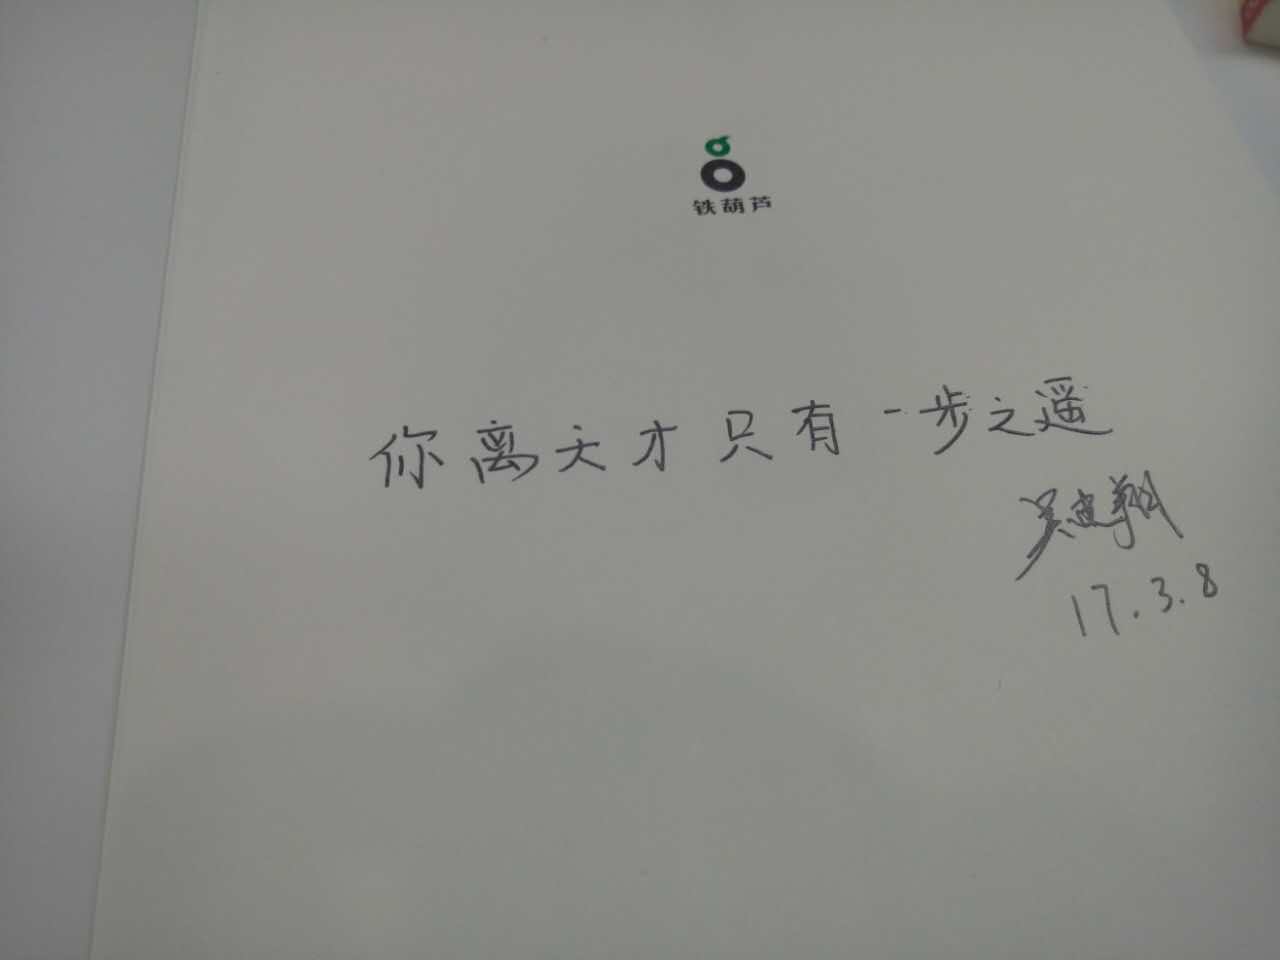 铁葫芦
你离天才只有一步之遥
吴建翔
17.3.8